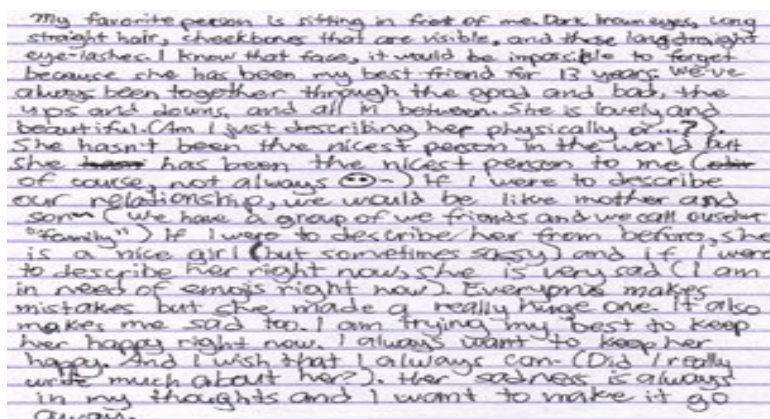 My favorite person is sitting in front of me. Dark brown eyes, long
straight hair, cheekbones that are visible, and those long straight
eye-lashes. I know that face, it would be impossible to forget
because she has been my best friend for 13 years. We've
always been together through the good and bad, the
ups and downs, and all in between. She is lovely and
beautiful. (Am I just describing her physically or...?).
She hasn't been the nicest person in the world but
She has been the nicest person to me (
of course, not always ) If I were to describe
our relationship, we would be like mother and
son (We have a group of we friends and we call
"family") If I were to describe her from before, she
is a nice girl (but sometimes sassy) and if I were
to describe her right now, she is very sad (I am
in need of emojis right now). Everyone makes
mistakes but she made a really huge one. It also
makes me sad too. I am trying my best to keep
her happy right now. I always want to keep her
happy. And I wish that I always can- (Did I really
write much about her?). Her sadness is always
in my thoughts and I want to make it go
away.